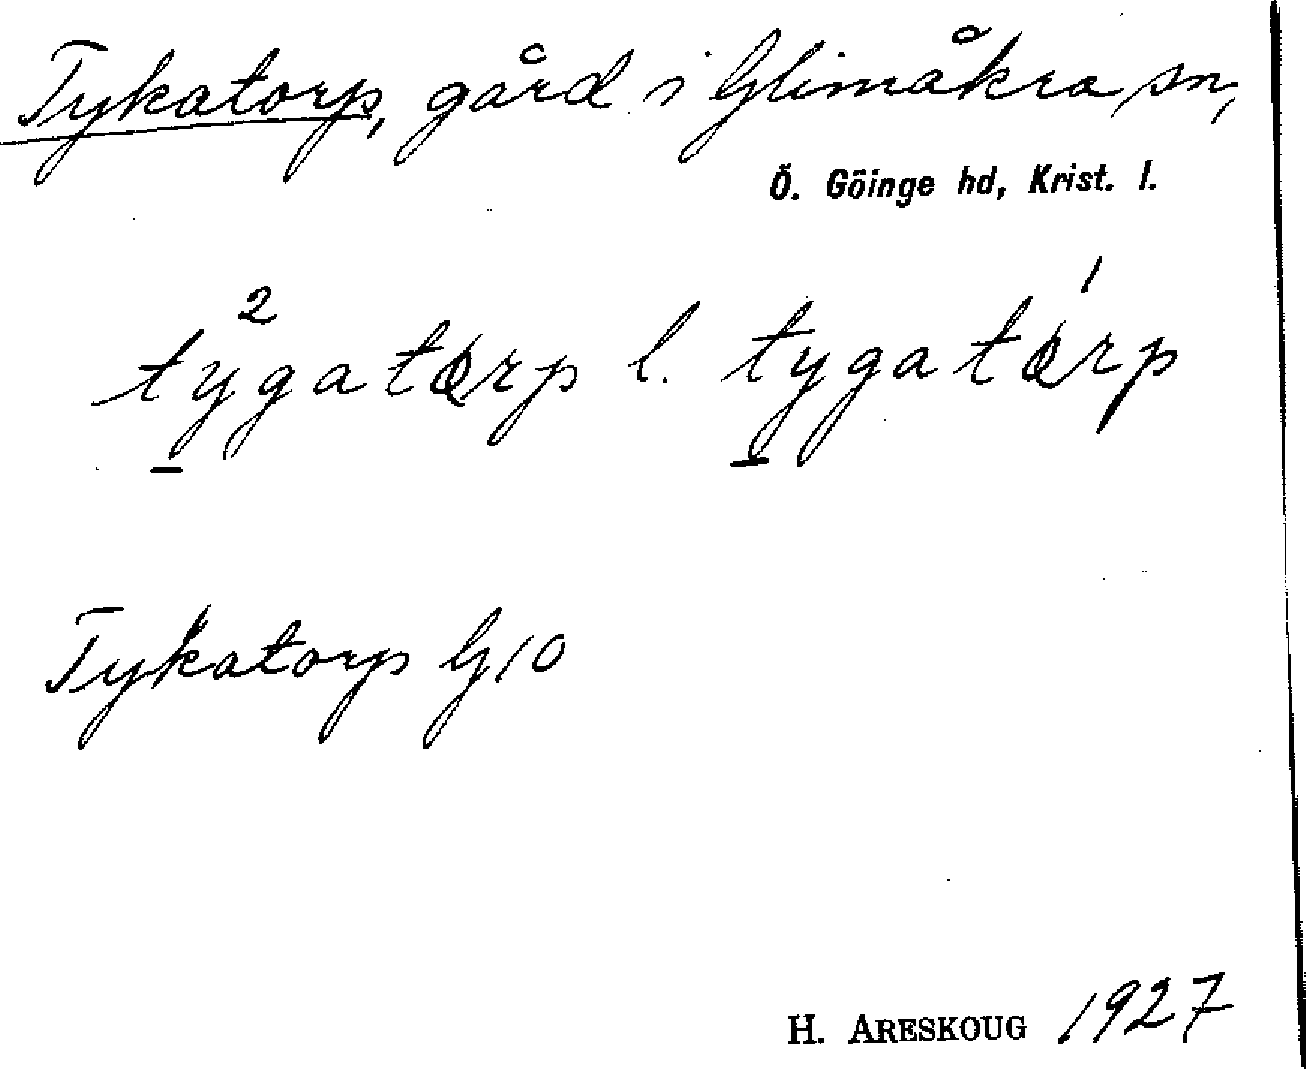 Tykatorp, gård i Glimåkra sn,
Ö. Göinge hd, Krist. l.
ty²gatorp l. tygató̸rp
Tykatorp G10
H. ARESKOUG 1927